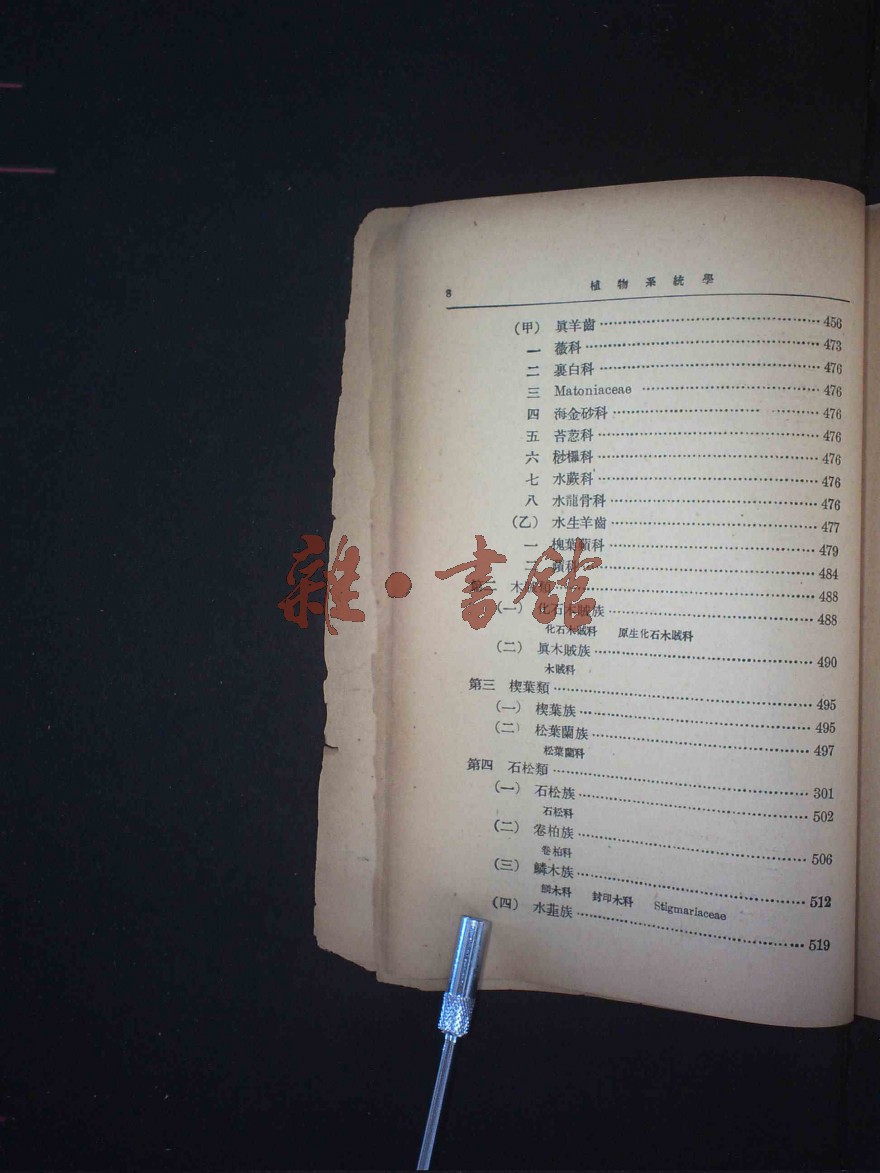 8 植物系統學
(甲) 眞羊齒 456
一 薇科 473
二 裏白科 476
三 Matoniaceae 476
四 海金砂科 476
五 苔葱科 476
六 桫欏科 476
七 水蕨科 476
八 水龍骨科 476
(乙) 水生羊齒 477
一 槐葉蘋科 479
二 蘋科 484
第二 木賊類 488
(一) 化石木賊族 488
化石木賊科 原生化石木賊科
(二) 眞木賊族 490
木賊科
第三 楔葉類 495
(一) 楔葉族 495
(二) 松葉蘭族 497
松葉蘭科
第四 石松類 301
(一) 石松族 502
石松科
(二) 卷柏族 506
卷柏科
(三) 鱗木族 512
鱗木科 封印木科 Stigmariaceae
(四) 水韭族 519
雜·書館